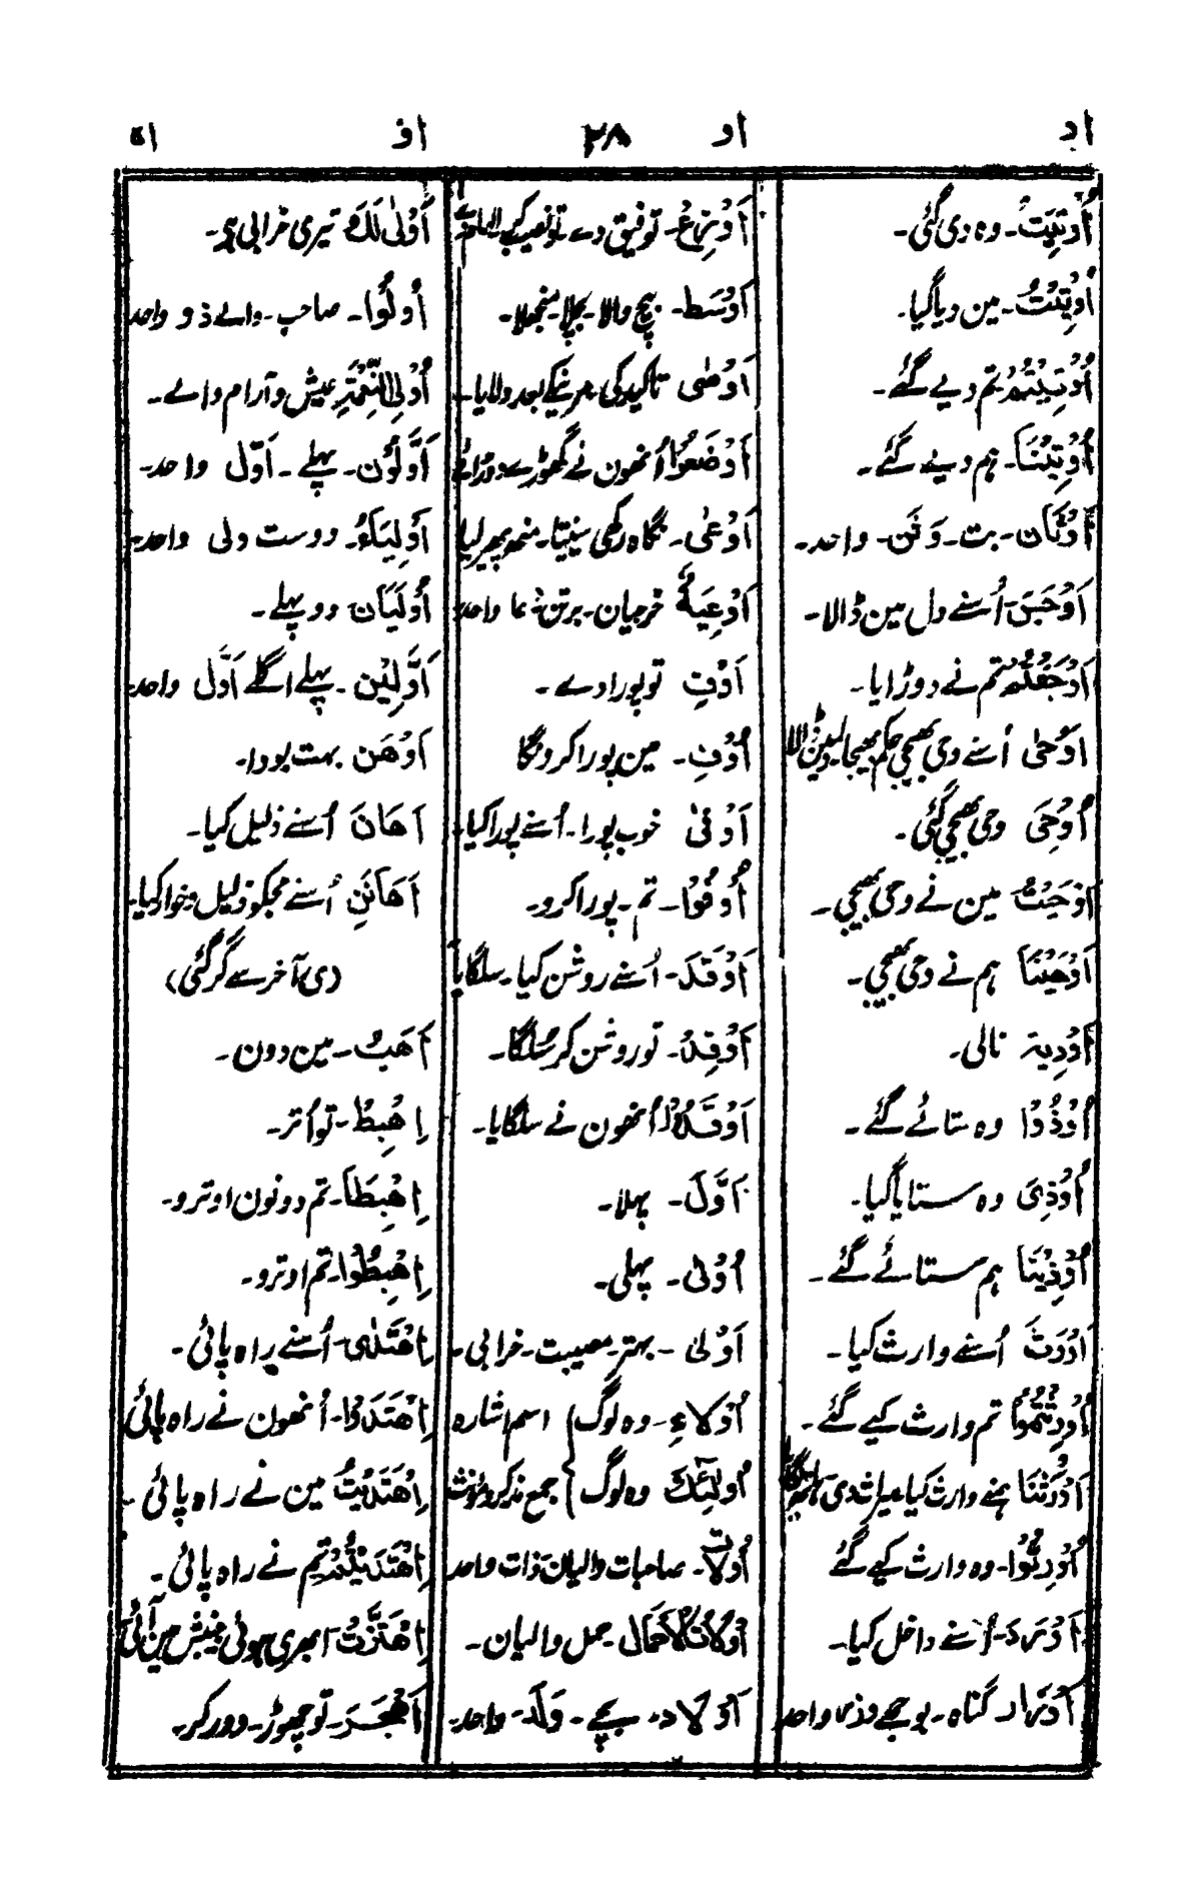 اد
او
۲۸
اہ
اُوْتِیَتْ۔ وہ دی گئی۔
اُوْتِیْتُ۔ مین دیا گیا۔
اُوْتِیْتُمْ تم دیے گئے۔
اُوْتِیْنَا۔ ہم دیے گئے۔
اَوْثَان۔ بت۔ وَثَن۔ واحد۔
اَوْجَسَ۔ اُسنے دل مین ڈالا۔
اَوْجَفْتُمْ تم نے دوڑایا۔
اَوْحٰی اُسنے وحی بھیجی حکم بھیجا
اُوْحِیَ وحی بھیجی گئی۔
اَوْحَیْتُ مین نے وحی بھیجی۔
اَوْحَیْنَا ہم نے وحی بھیجی۔
اَوْدِیَۃ نالی۔
اُوْذُوْا وہ ستائے گئے۔
اُوْذِیَ وہ ستایا گیا۔
اُوْذِیْنَا ہم ستائے گئے۔
اَوْرَثَ اُسنے وارث کیا۔
اُوْرِثْتُمُوْا تم وارث کیے گئے۔
اَوْرَثْنَا ہمنے وارث کیا میراث دی
اُوْرِثُوْا۔ وہ وارث کیے گئے
اَوْرَدَ۔ اُسنے داخل کیا۔
اَوْزَار گناہ۔ بوجھے وزر واحد
اَوْزِعْ۔ توفیق دے تو نصیب کر۔
اَوْسَط۔ بیچ والا۔ بچلا۔ منجھلا۔
اَوْصٰی تاکید کی مرنیکے بعد دلایا۔
اَوْضَعُوْا اُنھون نے گھوڑے دوڑائے
اَوْعٰی۔ نگاہ رکھی سینتا۔ منھ پھیر لیا
اَوْعِیَۃٌ خرجیان۔ برتن وعا واحد
اَوْفِ تو پورا دے۔
اُوْفِ۔ مین پورا کرونگا
اَوْفٰی خوب پورا۔ اُسنے پورا کیا۔
اُوْفُوْا۔ تم۔ پورا کرو۔
اَوْقَدَ۔ اُسنے روشن کیا۔ سلگایا
اَوْقِدْ۔ تو روشن کر سُلگا۔
اَوْقَدُوْا اُنھون نے سلگایا۔
اَوَّلَ۔ پہلا۔
اُوْلٰی۔ پہلی۔
اَوْلٰی۔ بہتر۔ مصیبت۔ خرابی۔
اُوْلَاءِ۔ وہ لوگ } اسم اشارہ
اُولٰٓئِكَ وہ لوگ } جمع مذکر و مؤنث
اُولَات۔ صاحبات والیان ذات واحد
اُوْلَاتُ الْاَحْمَال حمل والیان۔
اَوْلَاد۔ بچے۔ وَلَد۔ واحد۔
اَوْلٰی لَكَ تیری خرابی ہے۔
اُولُوا۔ صاحب۔ والے ذو واحد
اُوْلِی النَّعْمَۃِ عیش و آرام والے۔
اَوَّلُوْن۔ پہلے۔ اَوَّل واحد۔
اَوْلِیَاءُ۔ دوست ولی واحد۔
اُوْلَیَان دو پہلے۔
اَوَّلِیْن۔ پہلے اگلے اَوَّل واحد
اَوْهَن بہت بودا۔
اَهَانَ اُسنے ذلیل کیا۔
اَهَانَنِ اُسنے مجکو ذلیل و خوار کیا۔
(ی آخر سے گر گئی)
اَهَبُ۔ مین دون۔
اِهْبِطْ۔ تو اُتر۔
اِهْبِطَا۔ تم دونون اوترو۔
اِهْبِطُوْا۔ تم اوترو۔
اِهْتَدٰی۔ اُسنے راہ پائی۔
اِهْتَدَوْا۔ اُنھون نے راہ پائی
اِهْتَدَیْتُ مین نے راہ پائی۔
اِهْتَدَیْتُمْ تم نے راہ پائی۔
اِهْتَزَّتْ اُبھری ہوئی جنبش مین آئی
اُهْجُرْ۔ تو چھوڑ۔ دور کر۔